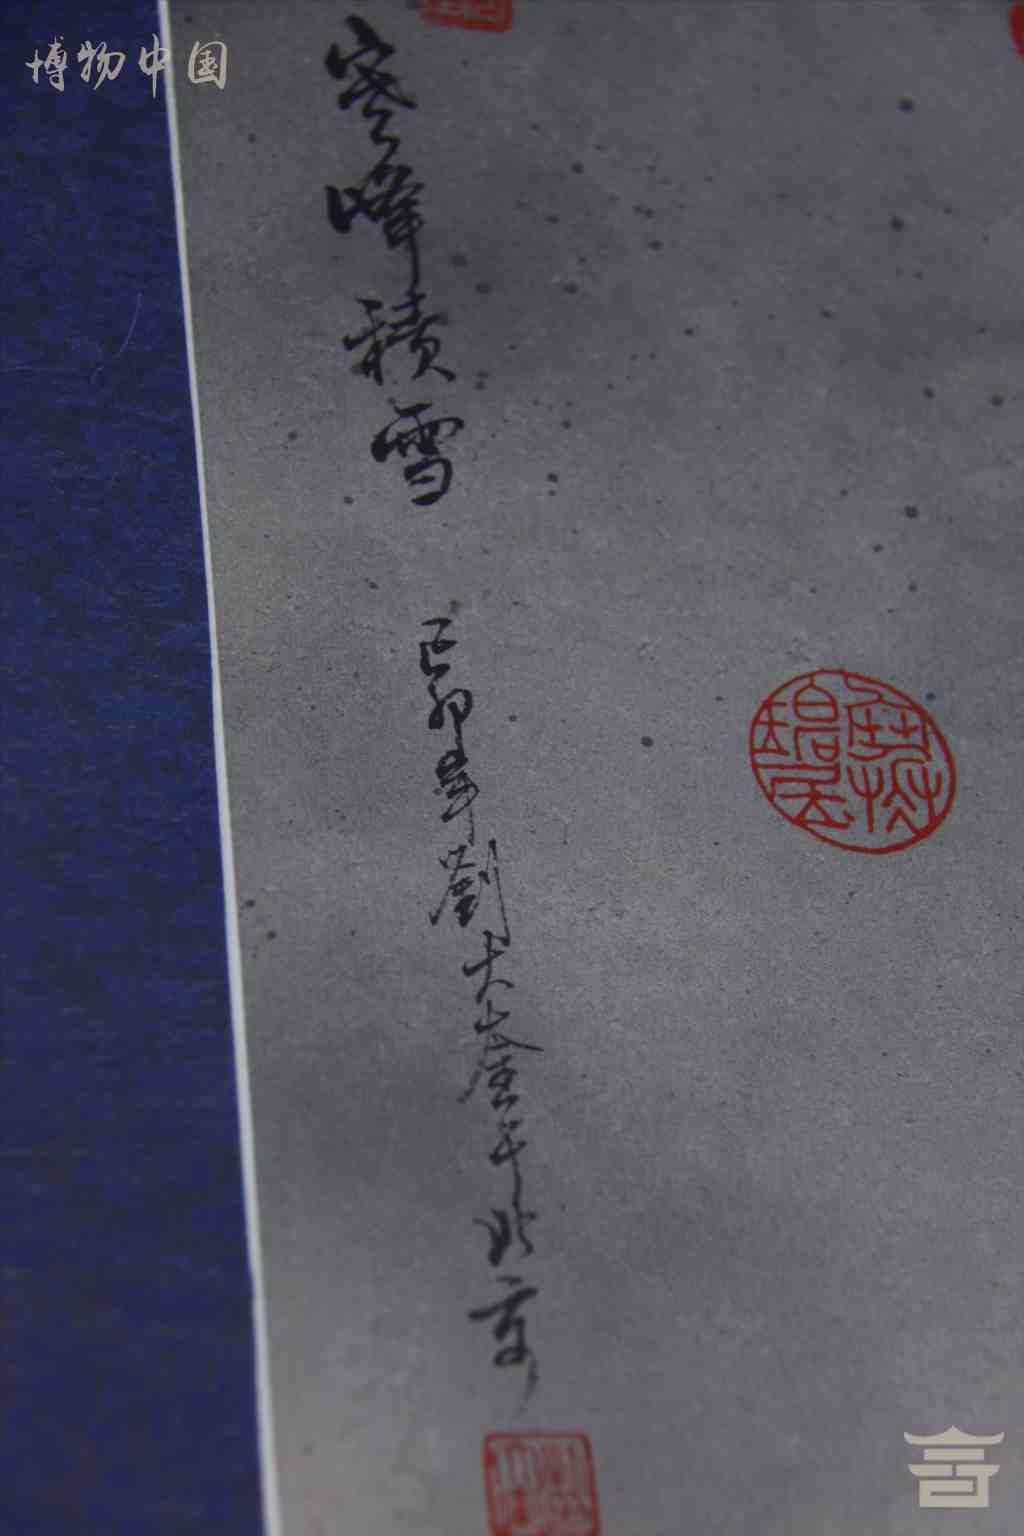 博物中国
寒峰積雪
己卯年劉大崟于北京